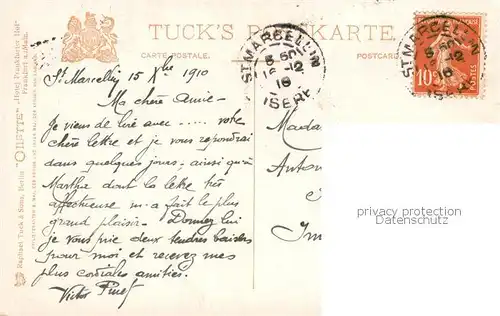 TUCK'S POSTKARTE.
CARTE POSTALE.
POSTCARD
Raphael Tuck & Söhne, Berlin "OILETTE" „Hotel Frankfurter Hof“
Frankfurt a. Main.
ST MARCELLIN
16 12
ISERE
ST MARCELLIN
12
10
St Marcellin 15 Xbre 1910
Ma chère Amie
Je viens de lire avec ..... votre
chère lettre et je vous répondrai
dans quelques jours, ainsi qu'à
Marthe dont la lettre très
affectueuse m'a fait le plus
grand plaisir. Donnez lui
je vous prie deux tendres baisers
pour moi et recevez mes
plus cordiales amitiés.
Victor
Mada
Anton
privacy protection
Datenschutz